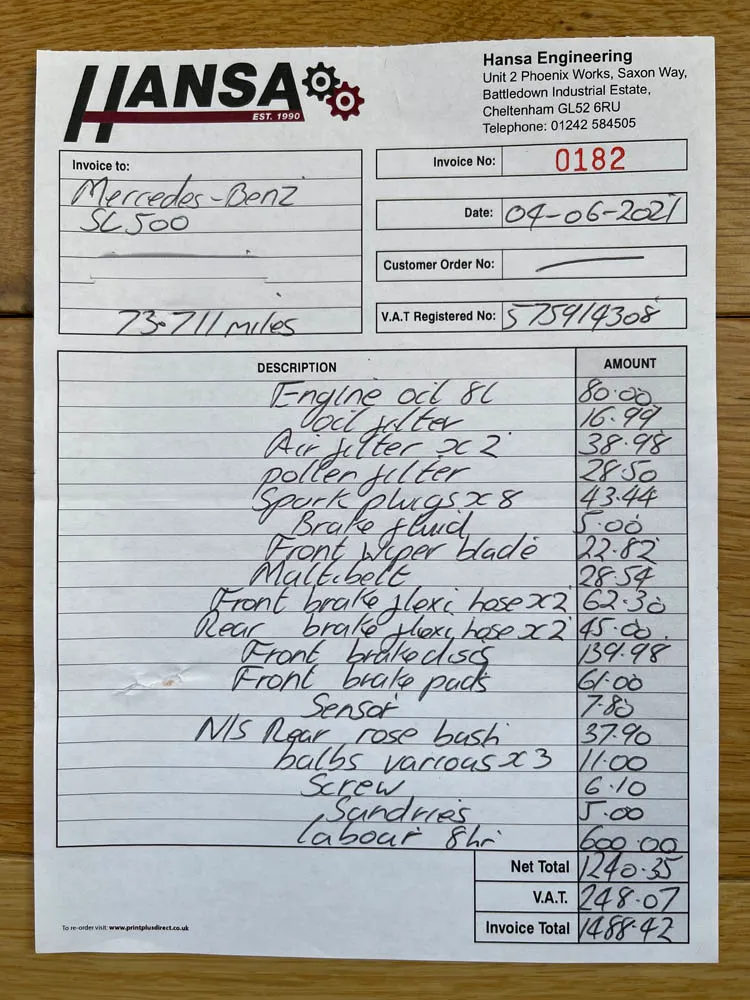 HANSA
EST. 1990
Hansa Engineering
Unit 2 Phoenix Works, Saxon Way,
Battledown Industrial Estate,
Cheltenham GL52 6RU
Telephone: 01242 584505
Invoice to:
Mercedes-Benz
SL500
73.711 miles
Invoice No: 0182
Date: 04-06-2021
Customer Order No:
V.A.T Registered No: 575914308
DESCRIPTION AMOUNT
Engine oil 8L 80.00
oil filter 16.99
Air filter x 2 38.98
pollen filter 28.50
Spark plugs x 8 43.44
Brake fluid 5.00
Front wiper blade 22.82
Multibelt 28.54
Front brake flexi hose x2 62.30
Rear brake flexi hose x2 45.00
Front brake discs 139.98
Front brake pads 61.00
Sensor 7.80
N/S Rear rose bush 37.90
bulbs various x 3 11.00
Screw 6.10
Sundries 5.00
labour 8hr 600.00
Net Total 1240.35
V.A.T. 248.07
Invoice Total 1488.42
To re-order visit: www.printplusdirect.co.uk